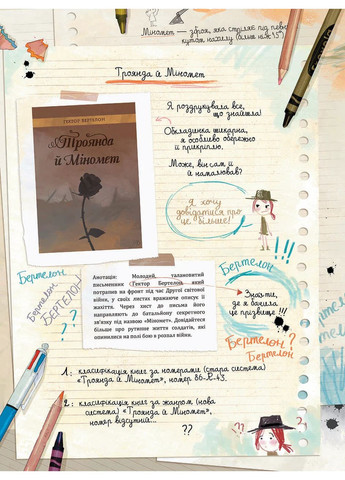 Міномет — зброя, яка стріляє під певн
кутом нахилу
Троянда й Міномет
ГЕКТОР БЕРТЕЛОН
Троянда
й Міномет
Я роздрукувала все,
що знайшла!
Обкладинка шикарна,
я особливо обережно
її прикріплю.
Може, він сам її
й намалював?
Я хочу
довідатися про
це більше!
!!!
Бертелон
Бертелон
БЕРТЕЛОН
??
Анотація: Молодий, талановитий
письменник Гектор Бертелон, який
потрапив на фронт під час Другої світової
війни, у своїх листах вражаюче описує її
жахіття. Через хист до письма його
направляють до батальйону секретного
зв'язку під назвою «Міномет». Довідайтеся
більше про рутинне життя солдатів, які
опинилися на полі бою в розпал війни.
Бертелон
Згадати,
де я бачила
це прізвище !!!
Бертелон
??
Бертелон
1: класифікація книг за номерами (стара система)
«Троянда й Міномет», номер
2: класифікація книг за жанром (нова
система) «Троянда й Міномет»,
номер відсутній...
??